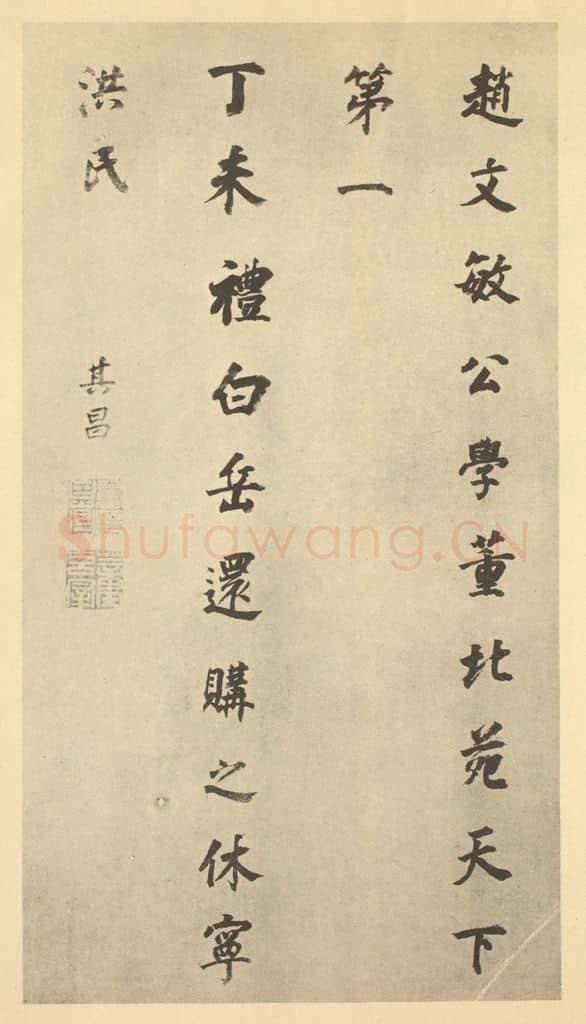 趙文敏公學董北苑天下
第一
丁未禮白岳還購之休寧
洪氏
其昌
Shufawang.CN